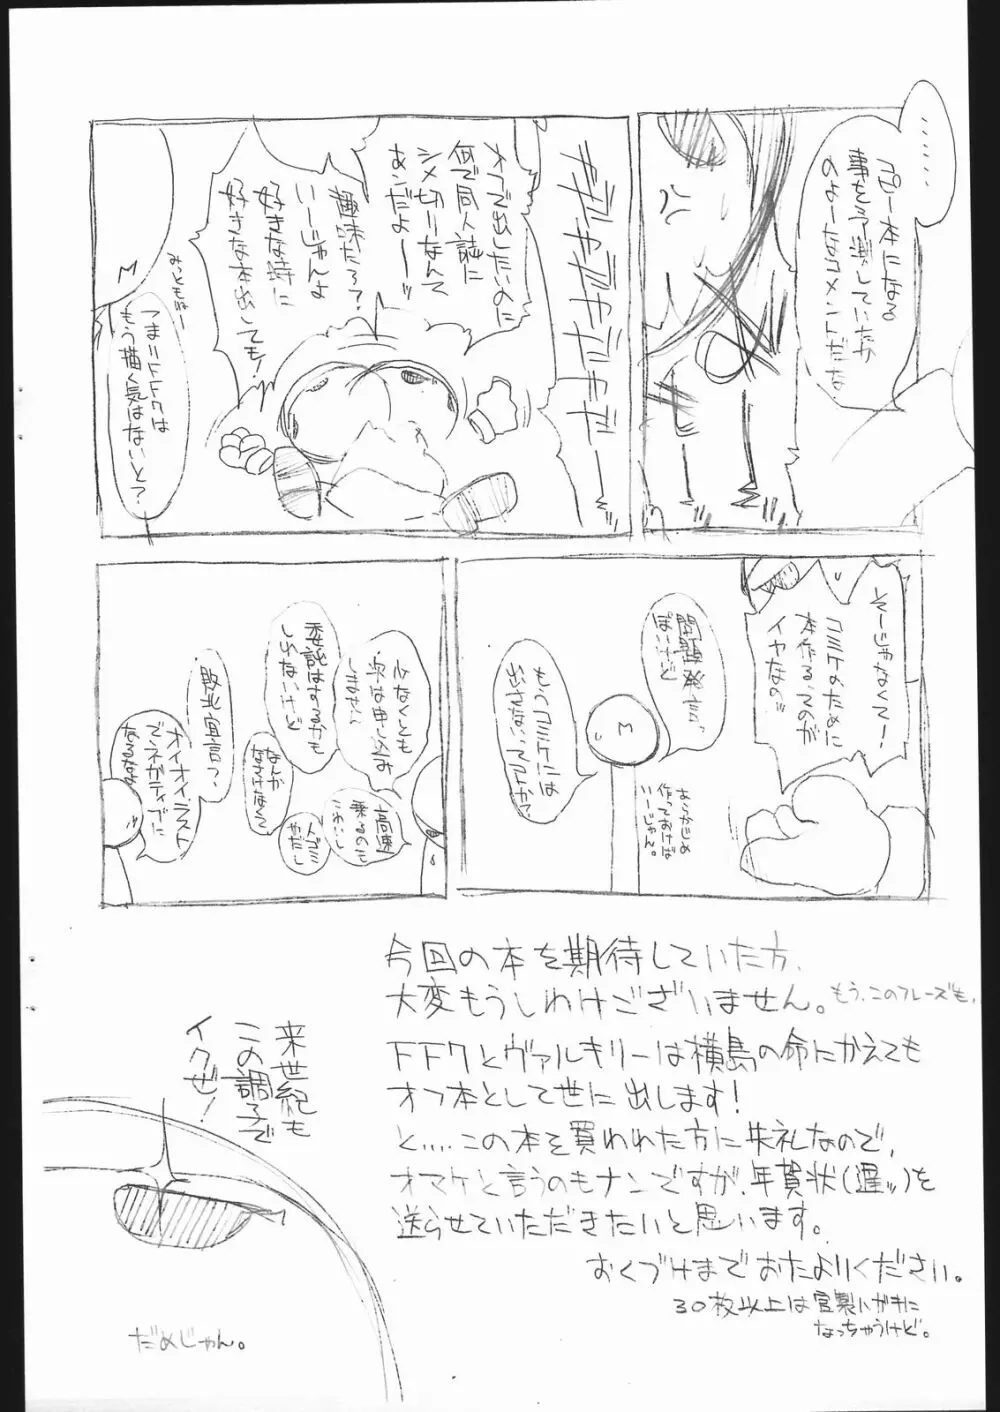 ……
コピー本になる
事を予測していたか
のよーなコメントだな
ヤダヤダヤダヤダ
オフで出したいのに
何で同人誌に
シメ切りなんて
あんだよーッ
趣味だろ?
いーじゃんよ
好きな時に
好きな本出しても!
みっともねー
M
つまりFF7は
もう描く気はないと?
そーじゃなくてー!
コミケのために
本作るってのが
イヤなの!!
問題発言っ
ぽいけど
M
もうコミケには
出さないってコトか?
あらかじめ
作っておけば
いーじゃん。
少なくとも
次は申し込み
しません
委託はするかも
しれないけど
高速
乗るのも
こわいし
人ゴミ
やだし
なんか
なさけなくて
敗北宣言?
オイオイ、ラスト
でネガティブに
なるなよ
今回の本を期待していた方、
大変もうしわけございません。もう、このフレーズも、
FF7とヴァルキリーは横島の命にかえても
オフ本として世に出します!
と....この本を買われた方に失礼なので、
オマケと言うのもナンですが、年賀状(遅ッ)を
送らせていただきたいと思います。
おくづけまでおたよりください。
30枚以上は官製ハガキに
なっちゃうけど。
来世紀も
この調子で
イクぜ!
だめじゃん。